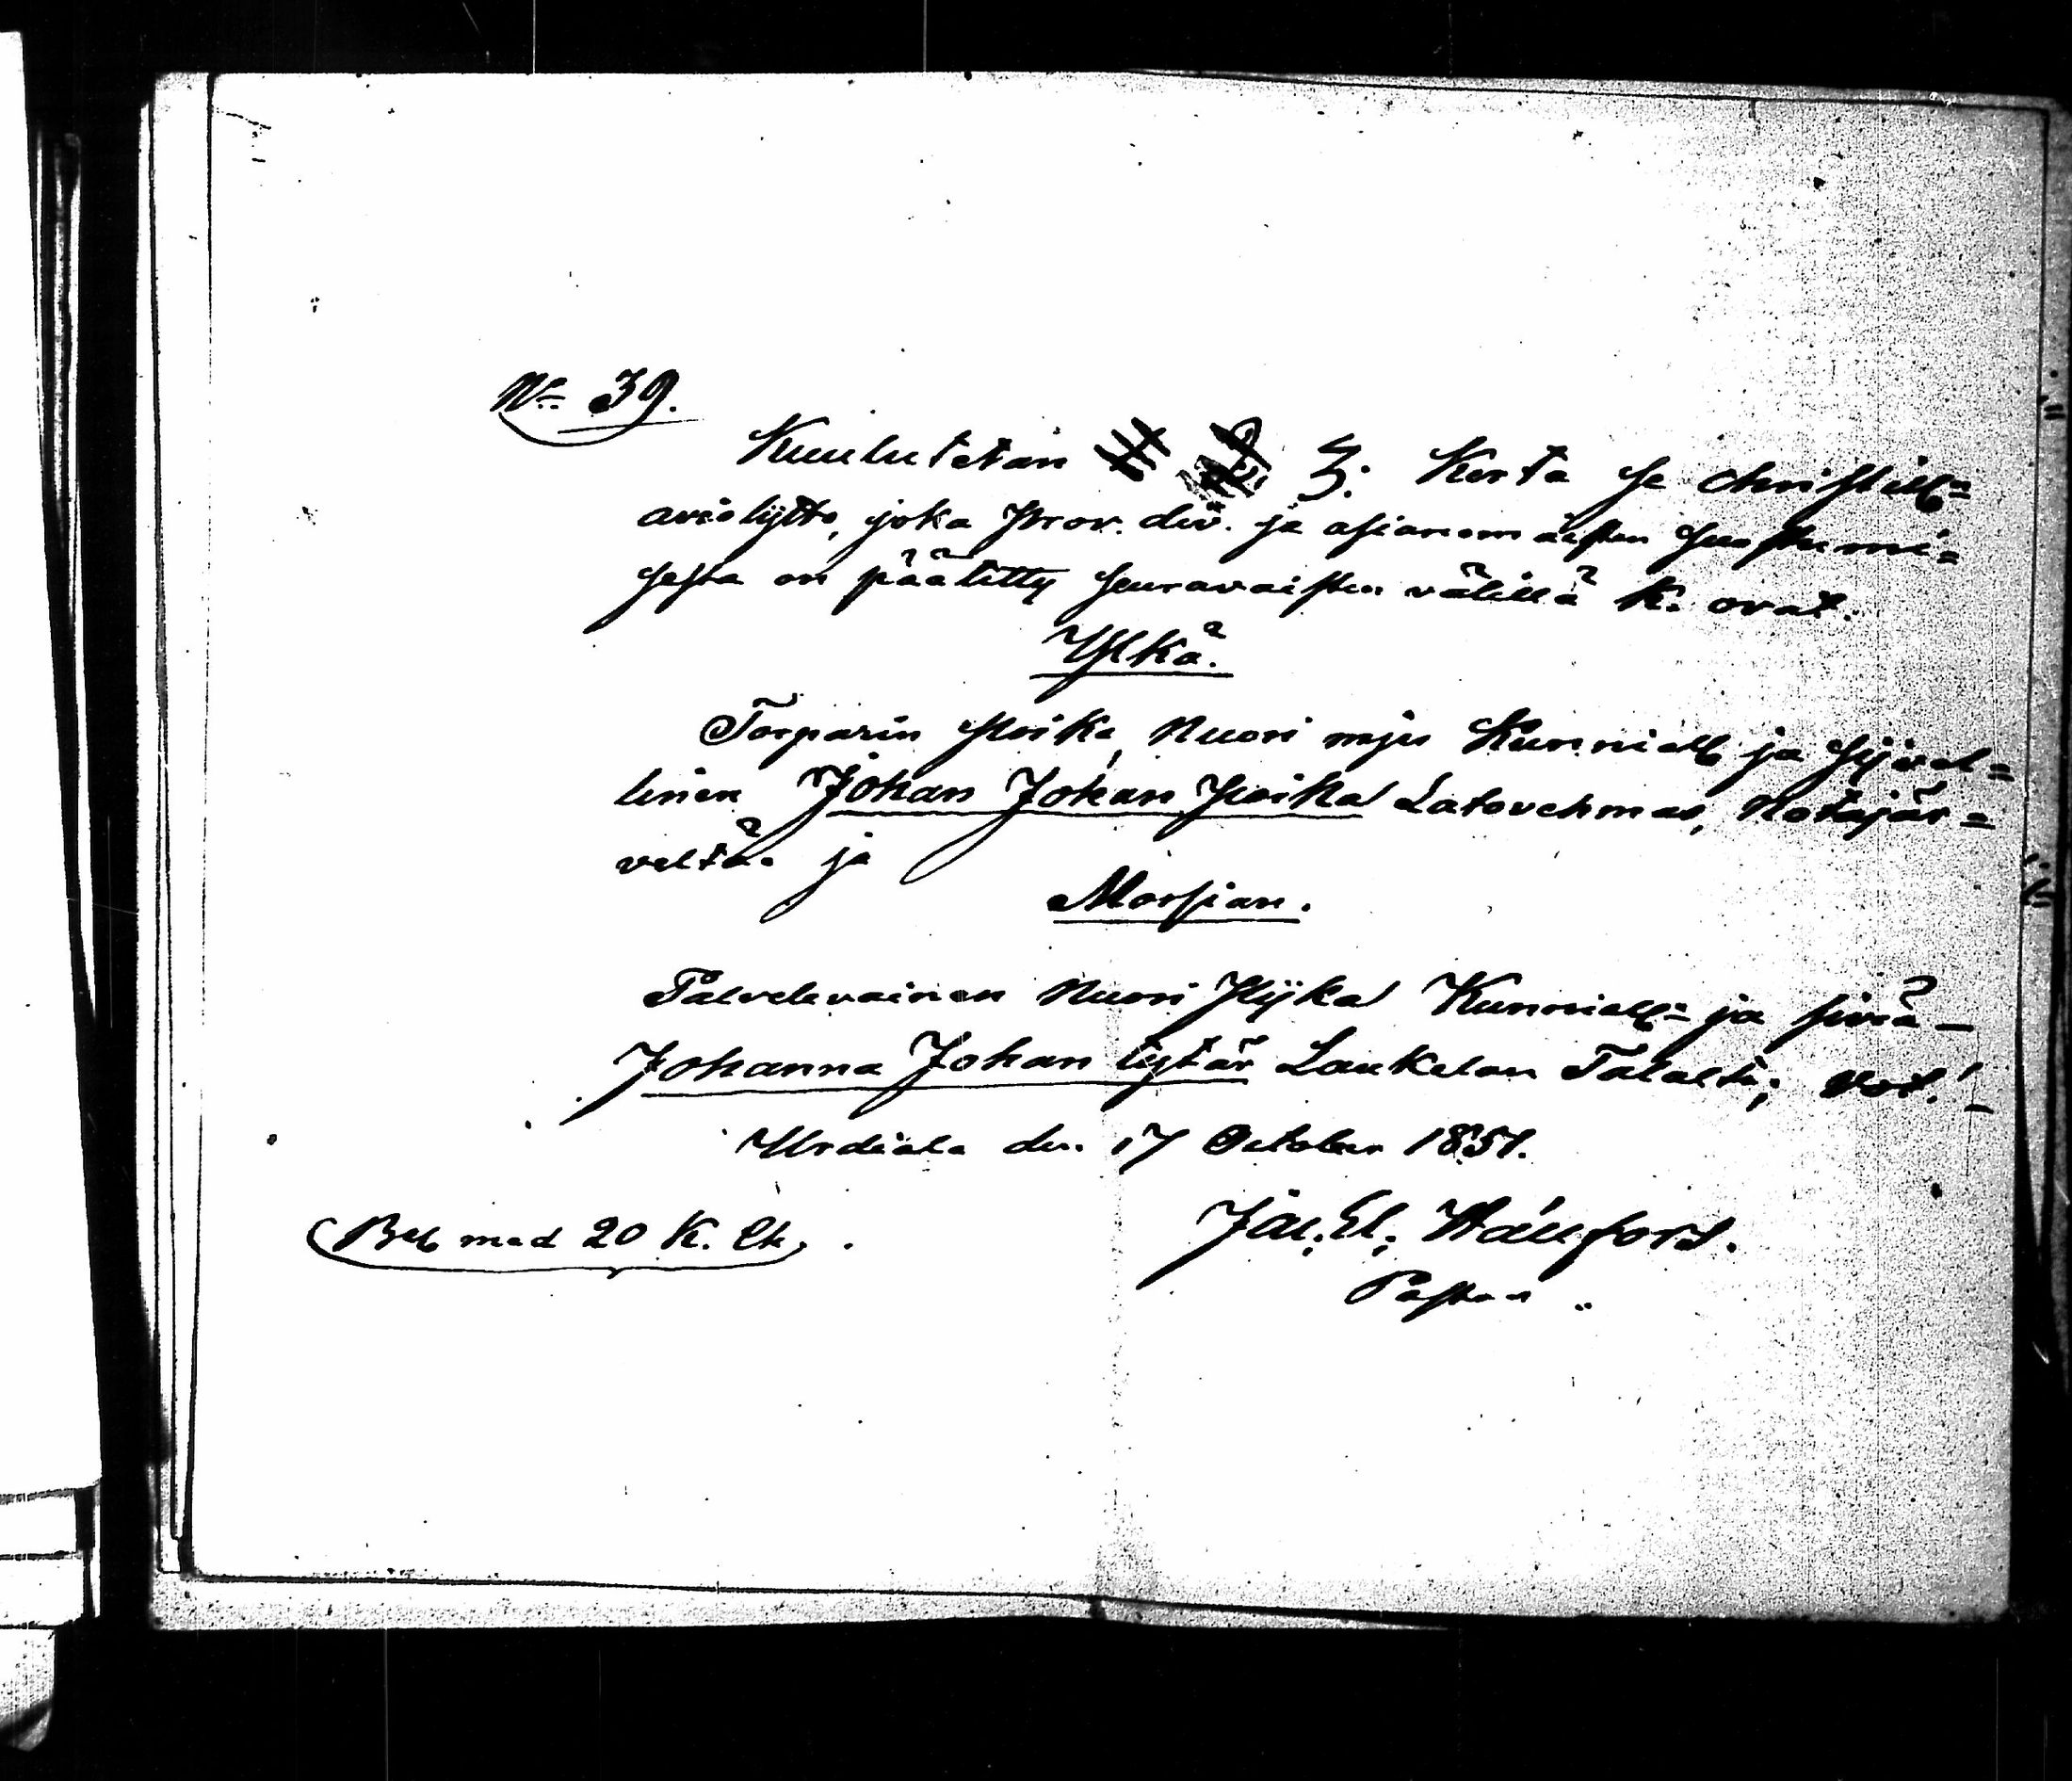 No 39.
Kuulutetan 3. Kerta se christill=
aviolijtto, joka prov. div. ja asianomaisten suostumi=
sesta on päätitty seuravaisten välillä k. ovat.
Ylkä.
Torparin poika, Nuori mies Kunniall ja sijvel=
linen Johan Johan poika Latovehmas, Notajär=
veltä. ja
Morsian.
Palvelevainen Nuori Pijka Kunniall= ja sivä-
Johanna Johan tytär Laukelan Talalta;
Urdiala den 17 October 1851.
Bet med 20 K.
Pastor